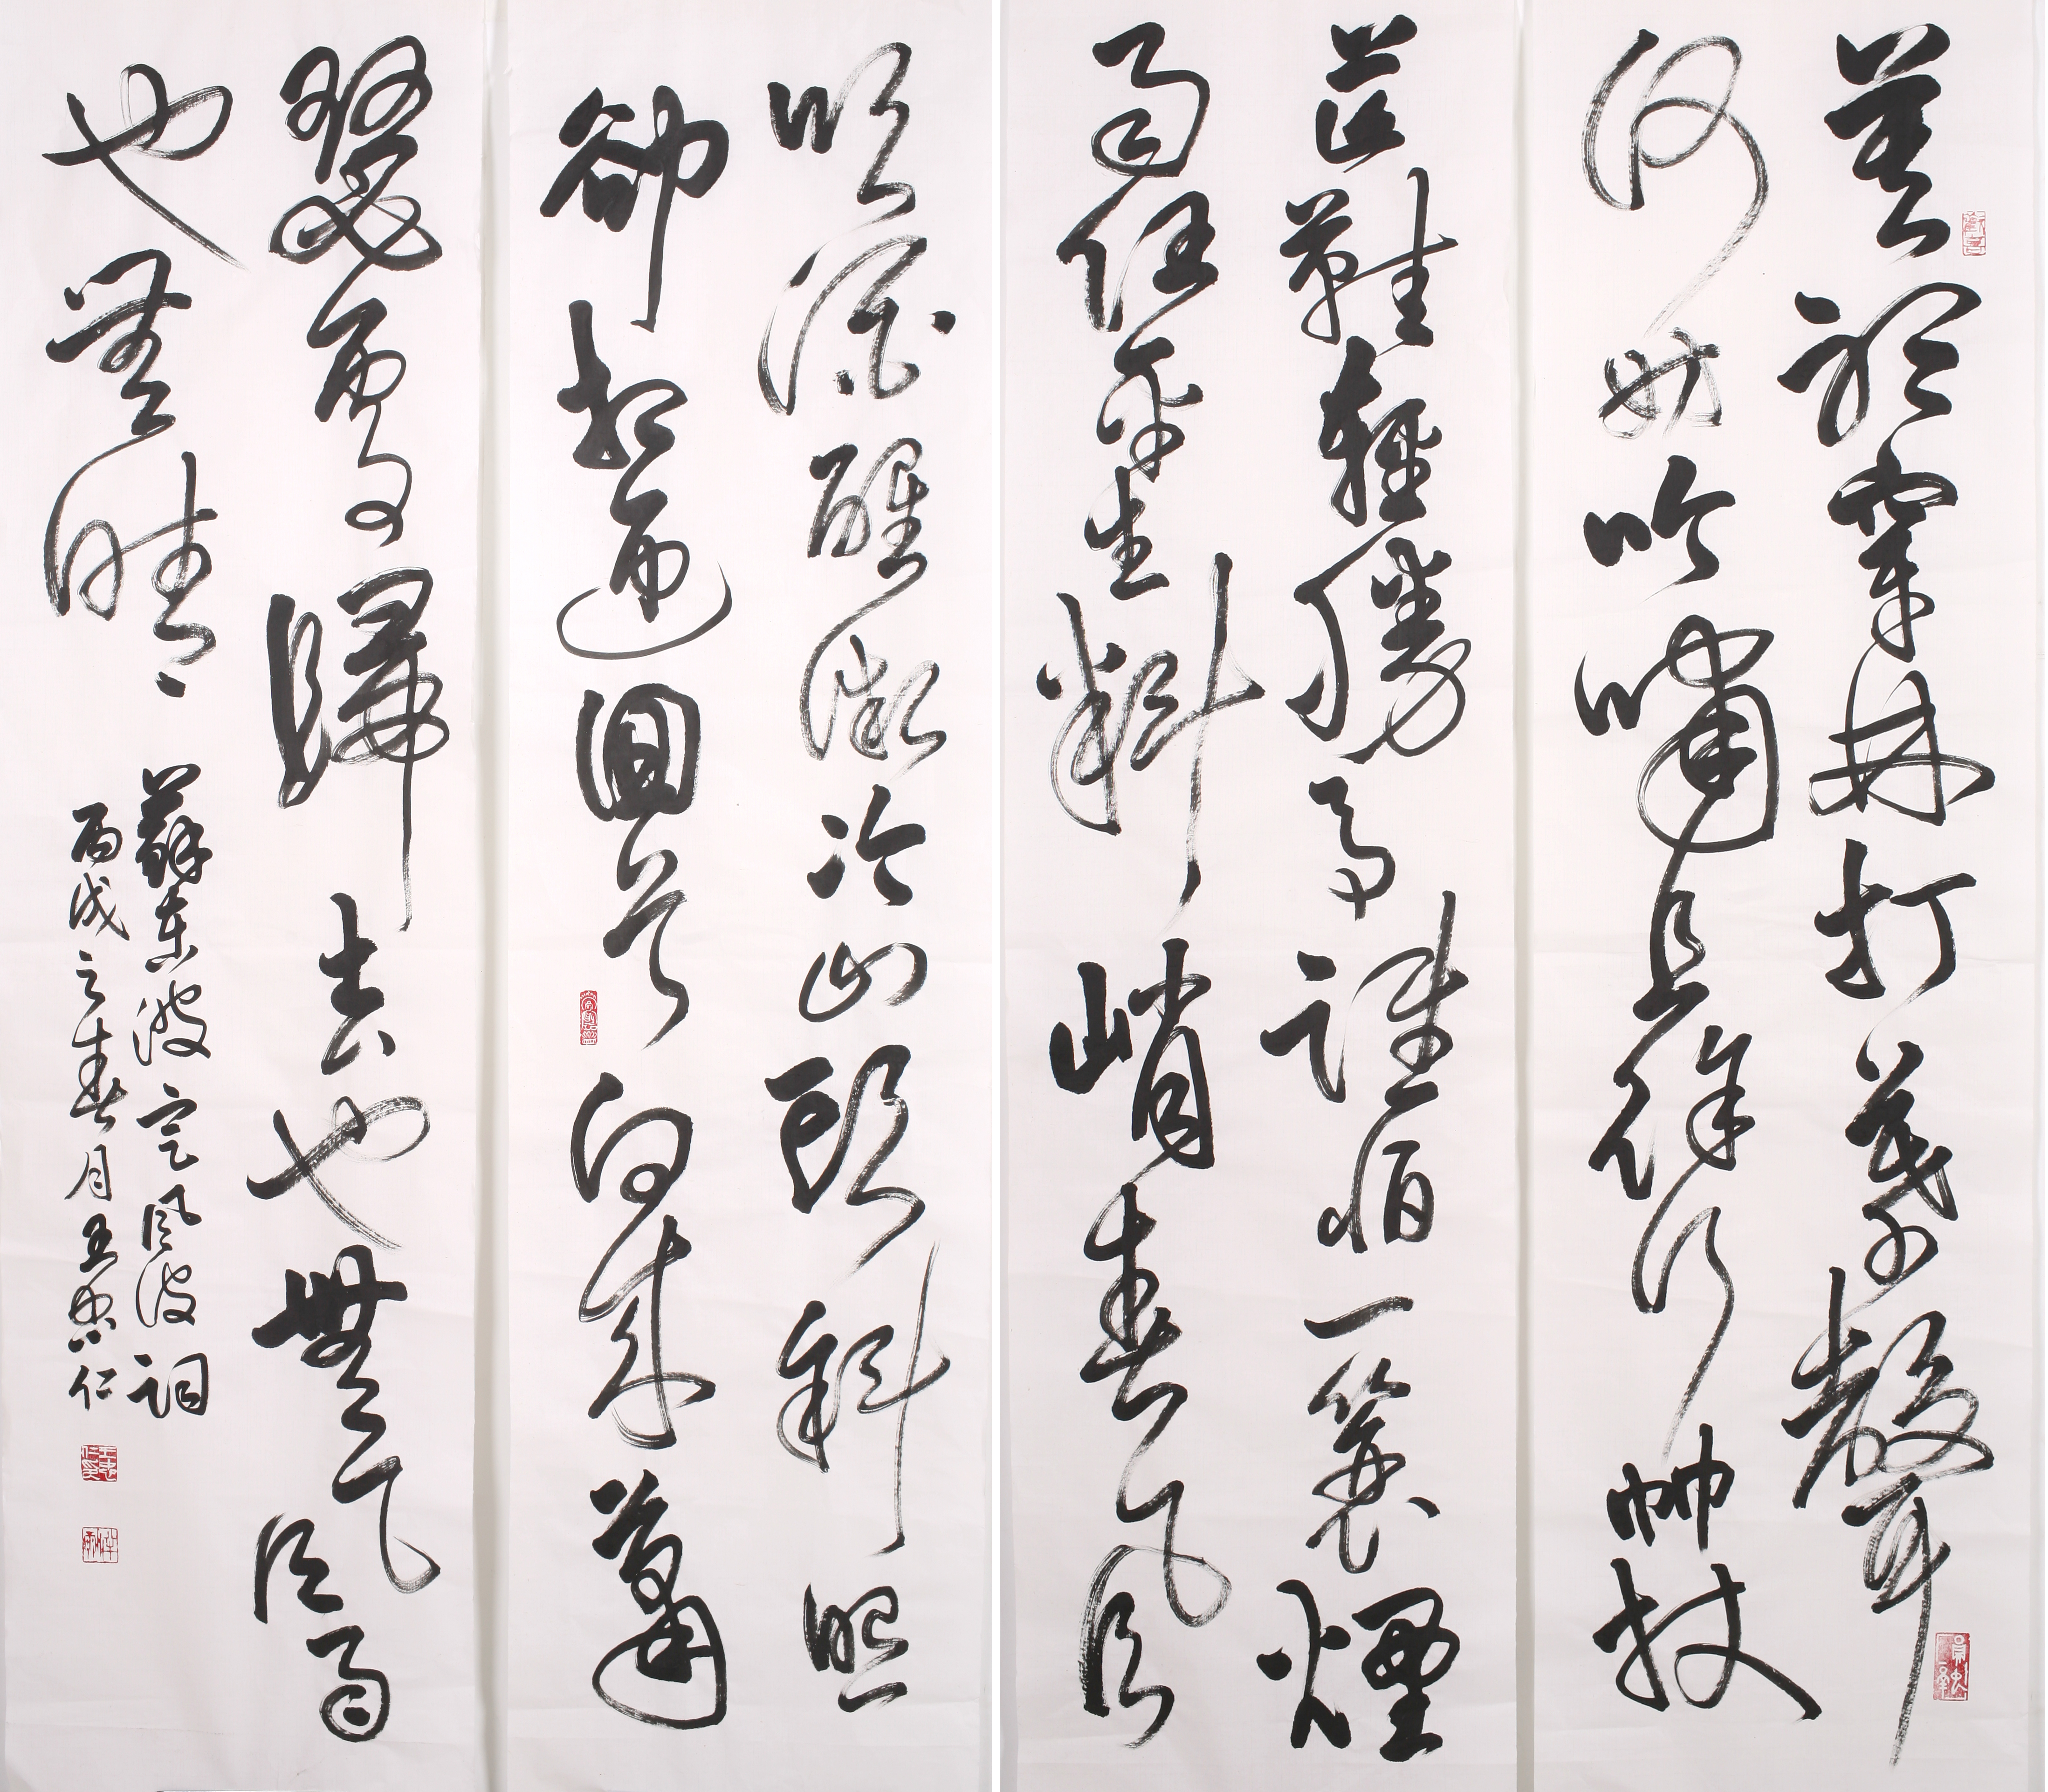 莫聽穿林打葉聲
何妨吟嘯且徐行竹杖
芒鞋輕勝馬誰怕一蓑煙
雨任平生料峭春風
吹酒醒微冷山頭斜照
卻相迎回首向來蕭
瑟處歸去也無風雨
也無晴
蘇東坡定風波詞
丙戌之春月王忠仁